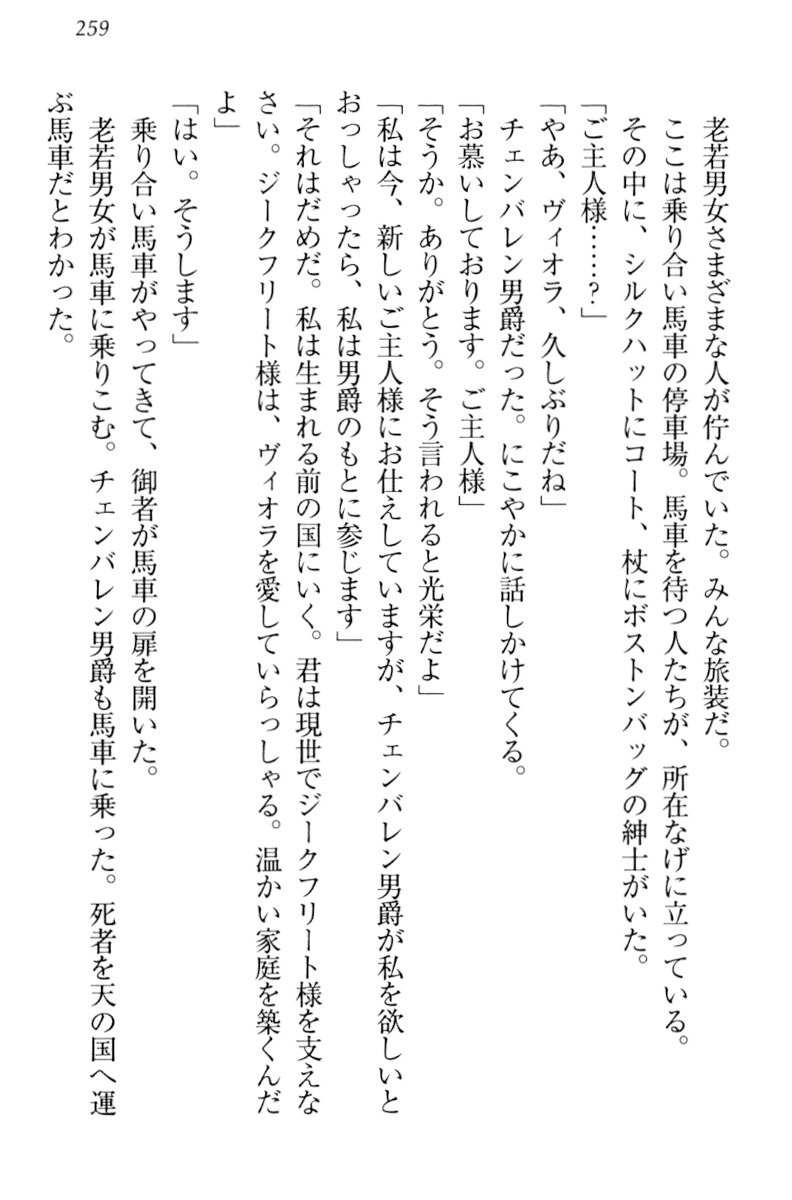 259
老若男女さまざまな人が佇んでいた。みんな旅装だ。
ここは乗り合い馬車の停車場。馬車を待つ人たちが、所在なげに立っている。
その中に、シルクハットにコート、杖にボストンバッグの紳士がいた。
「ご主人様……?」
「やあ、ヴィオラ、久しぶりだね」
チェンバレン男爵だった。にこやかに話しかけてくる。
「お慕いしております。ご主人様」
「そうか。ありがとう。そう言われると光栄だよ」
「私は今、新しいご主人様にお仕えしていますが、チェンバレン男爵が私を欲しいと
おっしゃったら、私は男爵のもとに参じます」
「それはだめだ。私は生まれる前の国にいく。君は現世でジークフリート様を支えな
さい。ジークフリート様は、ヴィオラを愛していらっしゃる。温かい家庭を築くんだ
よ」
「はい。そうします」
乗り合い馬車がやってきて、御者が馬車の扉を開いた。
老若男女が馬車に乗りこむ。チェンバレン男爵も馬車に乗った。死者を天の国へ運
ぶ馬車だとわかった。